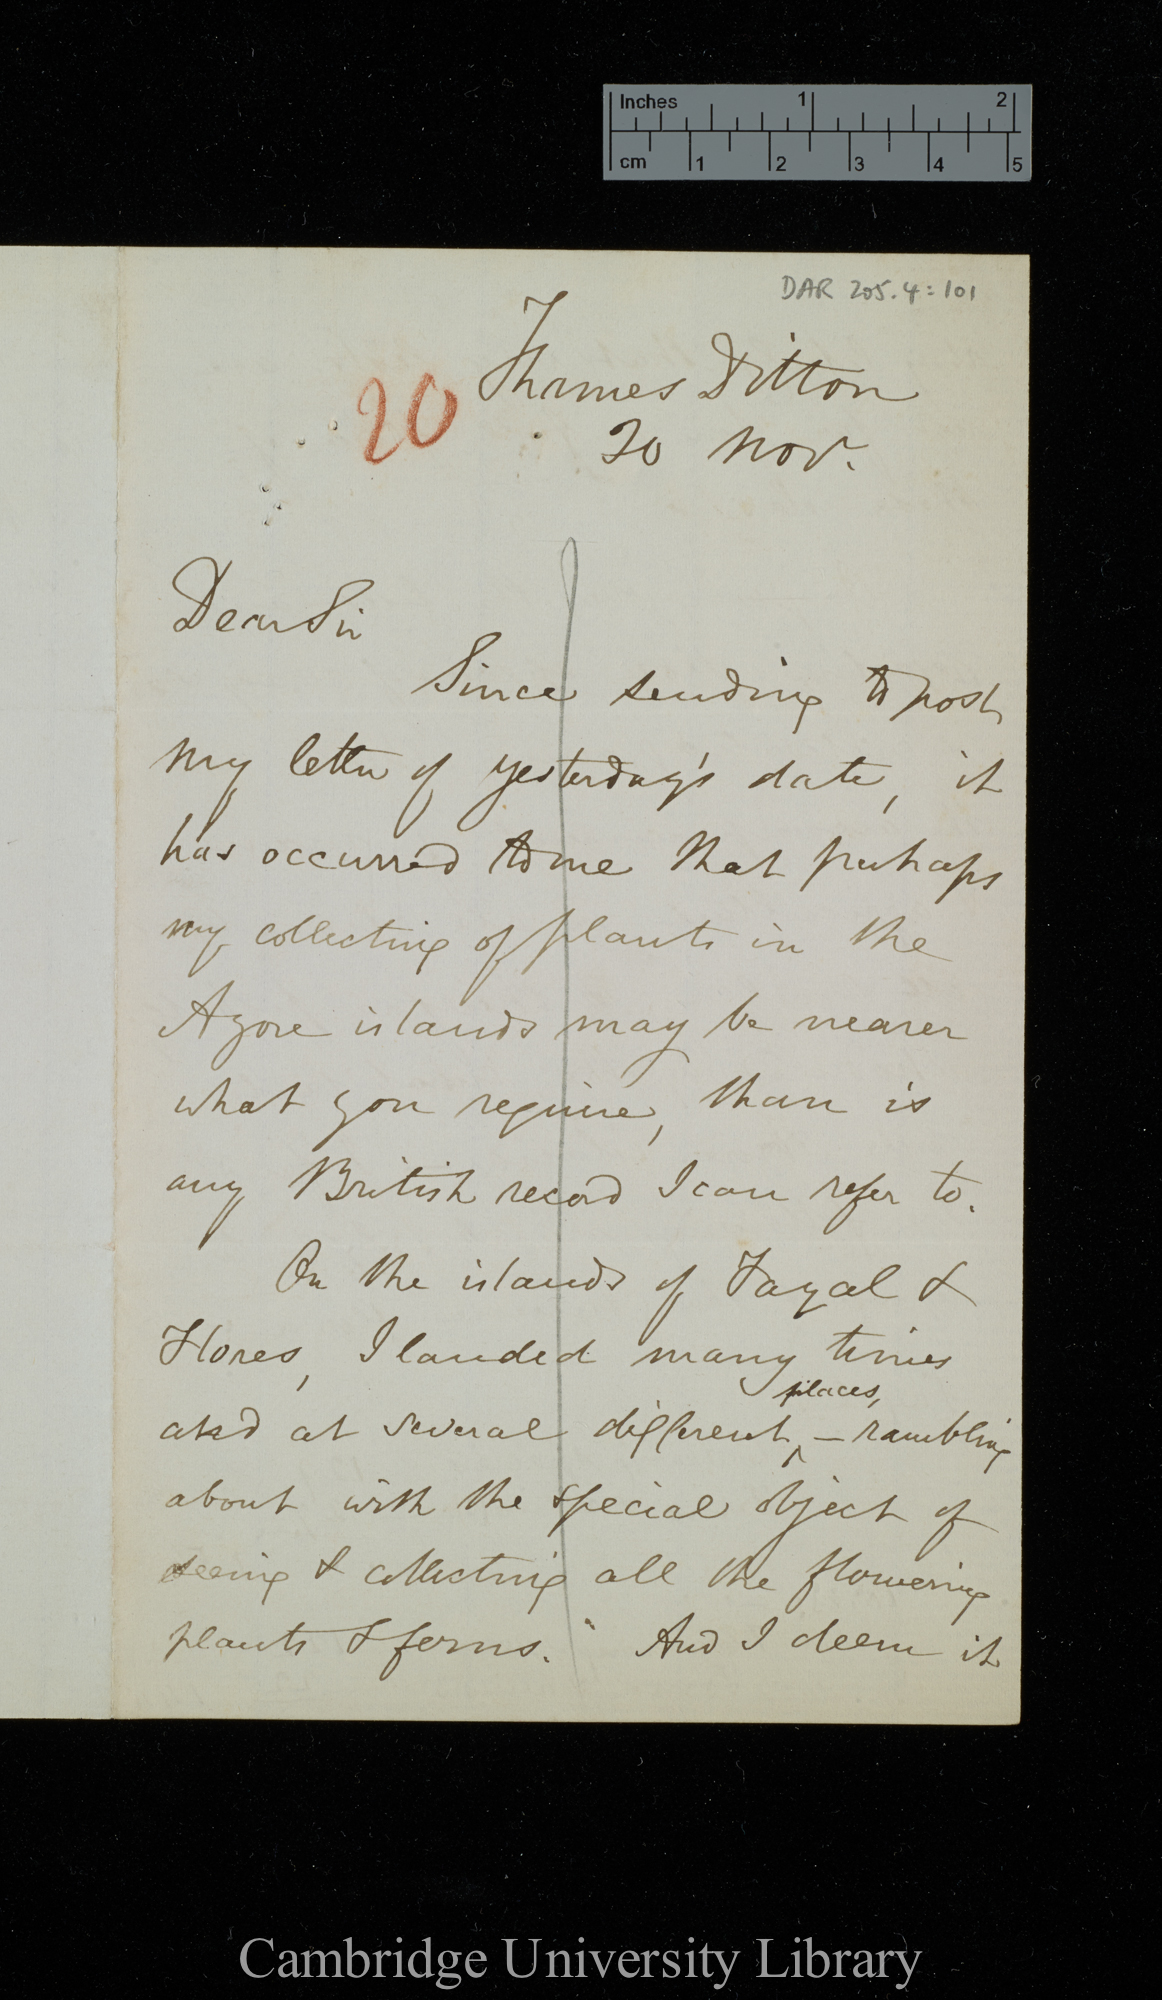 Inches 1 2
cm 1 2 3 4 5
DAR 205.4:101
Thames Ditton
20
20 Nov.
Dear Sir
Since sending to post
my letter of yesterday's date, it
has occurred to me that perhaps
my collecting of plants in the
Azore islands may be nearer
what you require, than is
any British record I can refer to.
On the islands of Fayal &
Flores, I landed many times
places,
at several different, — rambling
about with the special object of
seeing & collecting all the flowering
plants & ferns. And I deem it
Cambridge University Library